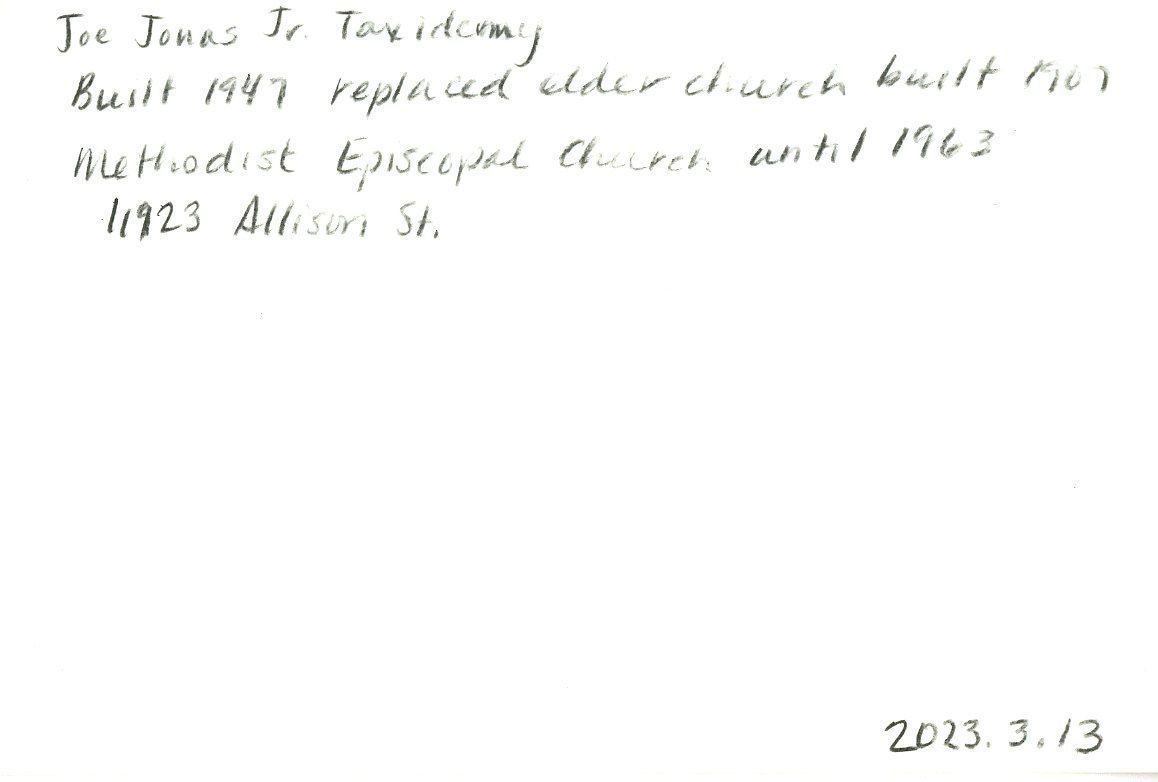 Joe Jonas Jr. Taxidermy
Built 1947 replaced older church built 1907
Methodist Episcopal Church until 1963
11923 Allison St.
2023.3.13